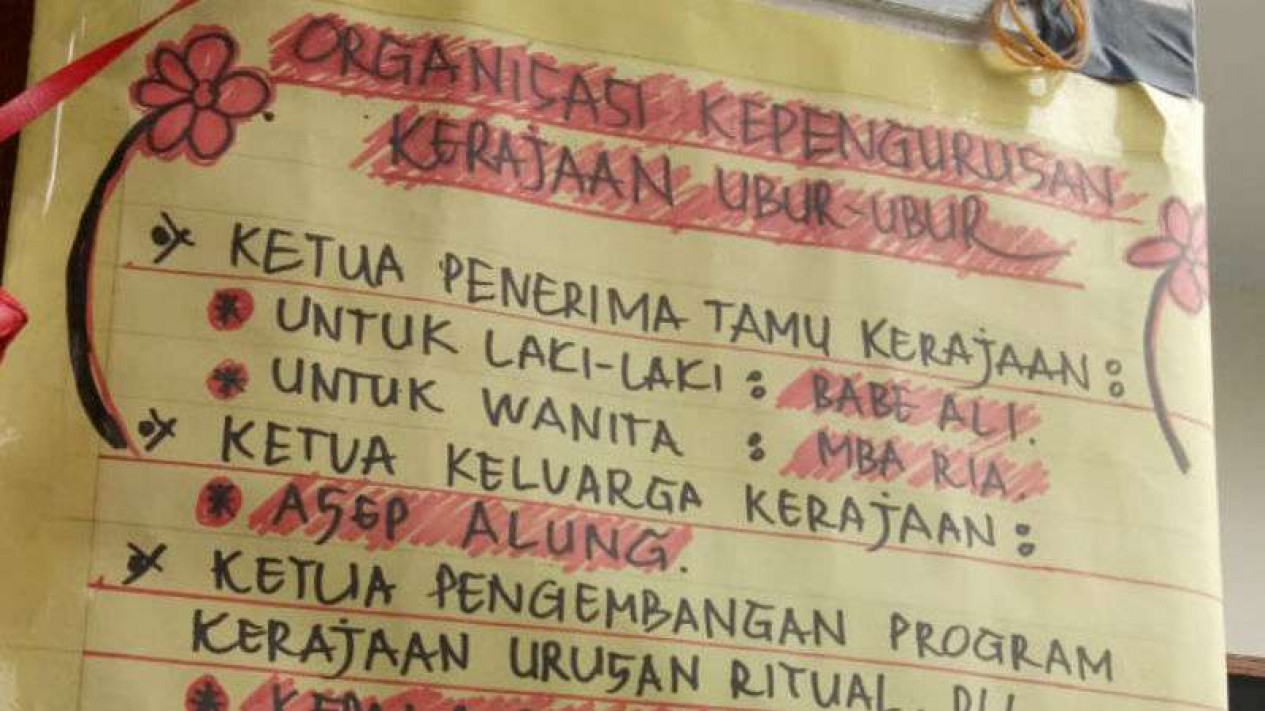 ORGANISASI KEPENGURUSAN
KERAJAAN UBUR-UBUR
KETUA PENERIMA TAMU KERAJAAN :
* UNTUK LAKI-LAKI : BABE ALI.
* UNTUK WANITA : MBA RIA.
KETUA KELUARGA KERAJAAN :
* ASEP ALUNG.
KETUA PENGEMBANGAN PROGRAM
KERAJAAN URUSAN RITUAL, DLL